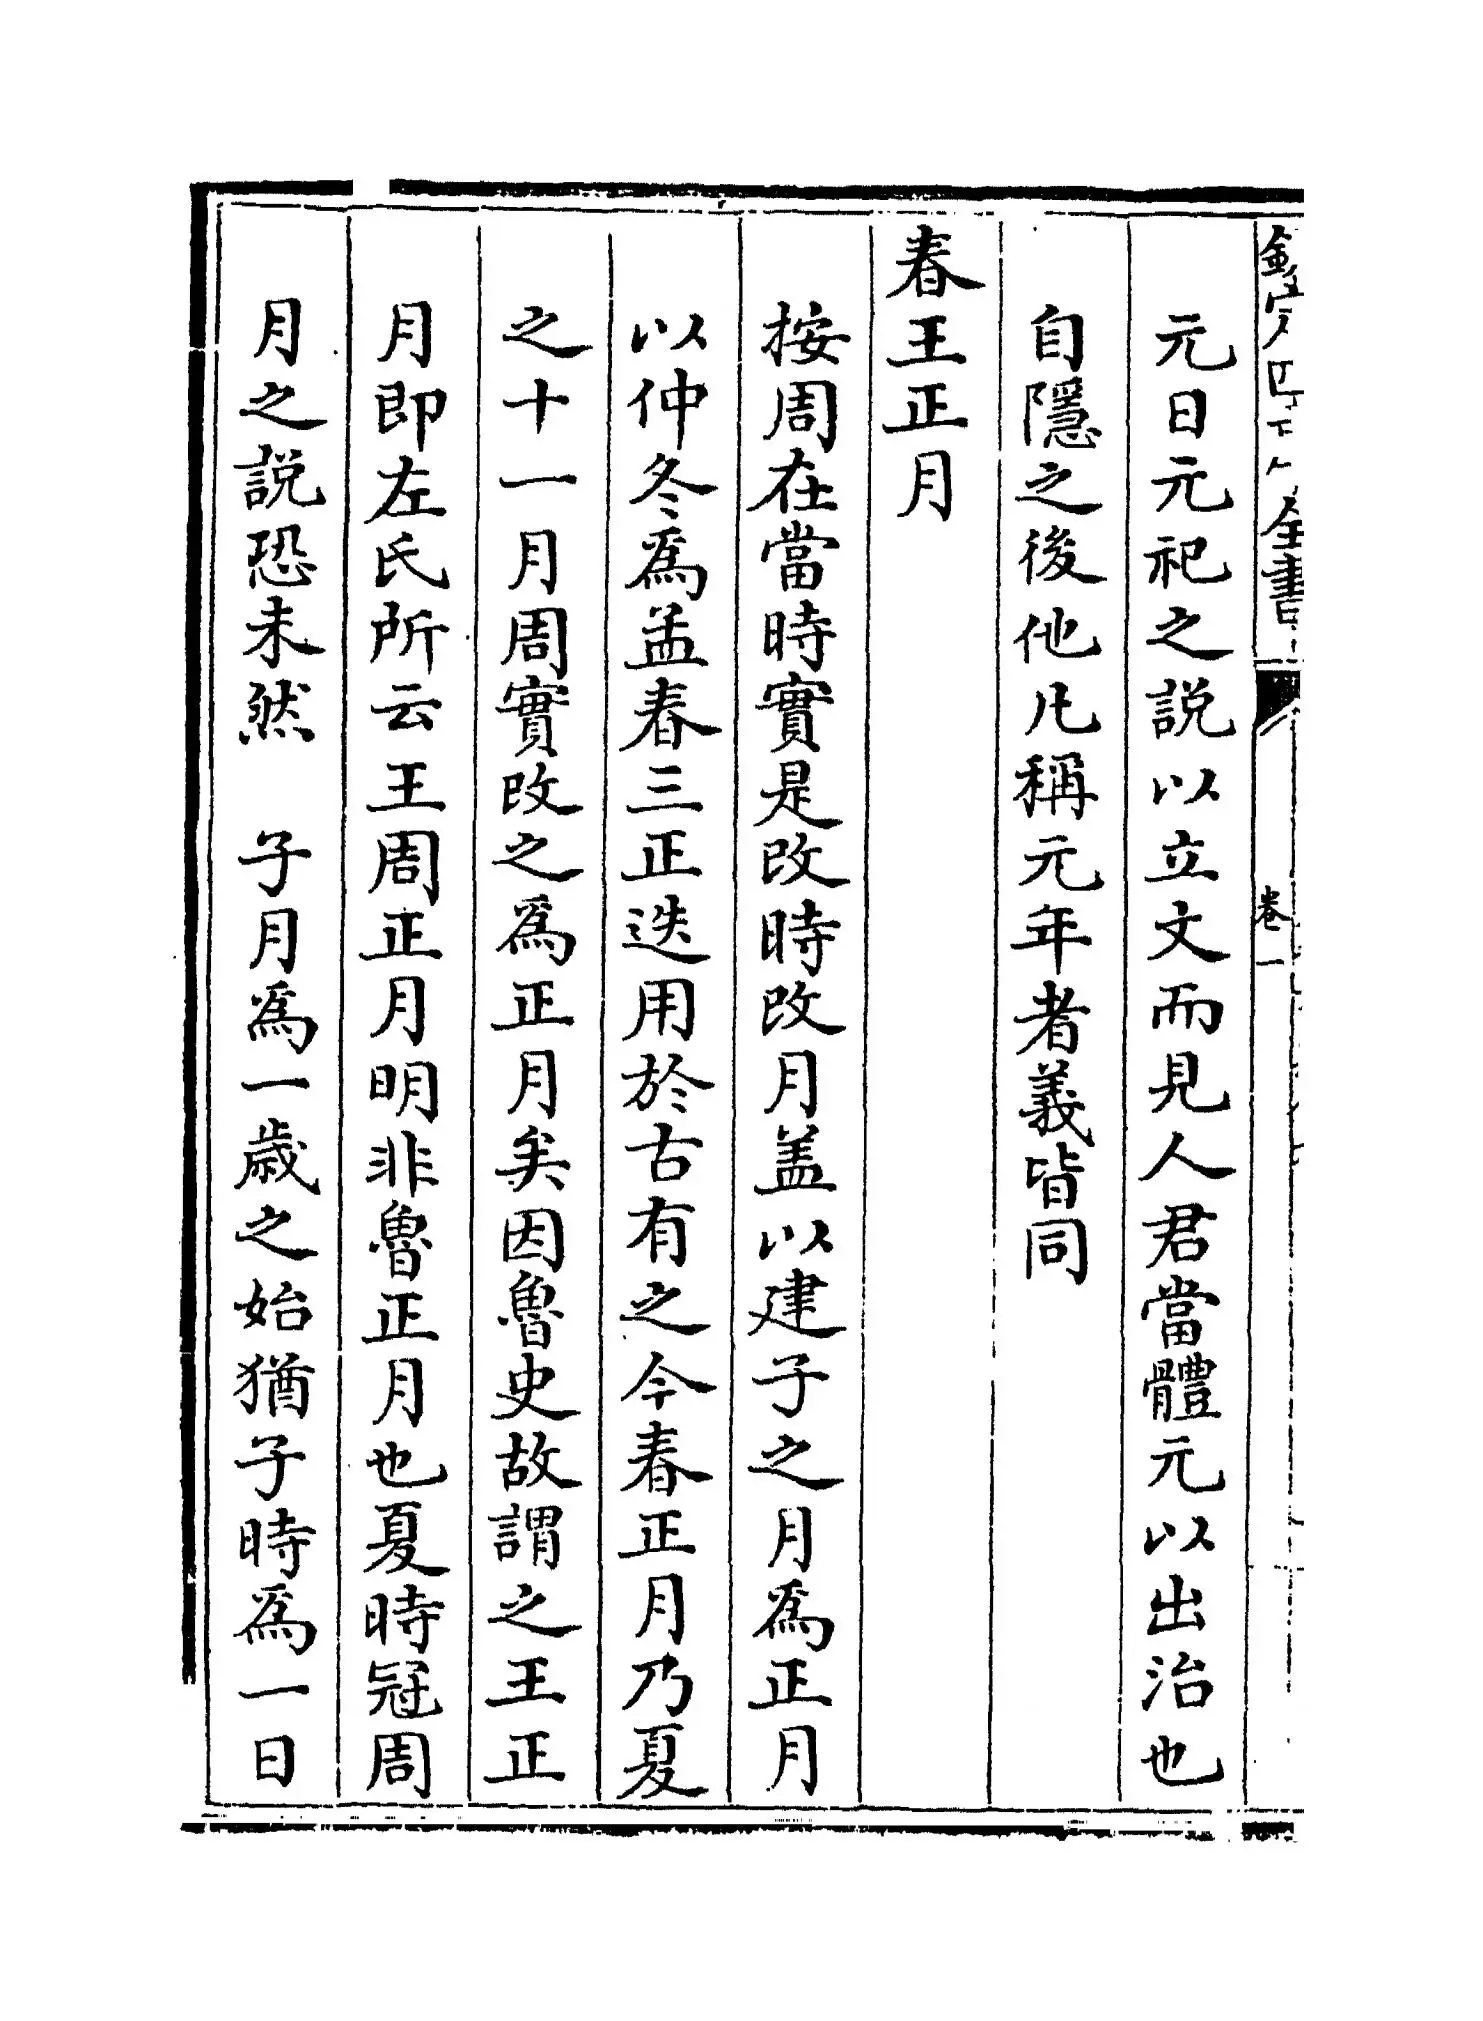 欽定四庫全書
卷一
元日元祀之說以立文而見人君當體元以出治也
自隱之後他凡稱元年者義皆同
春王正月
按周在當時實是改時改月盖以建子之月為正月
以仲冬為孟春三正迭用於古有之今春正月乃夏
之十一月周實改之為正月矣因魯史故謂之王正
月即左氏所云王周正月明非魯正月也夏時冠周
月之說恐未然　子月為一歲之始猶子時為一日